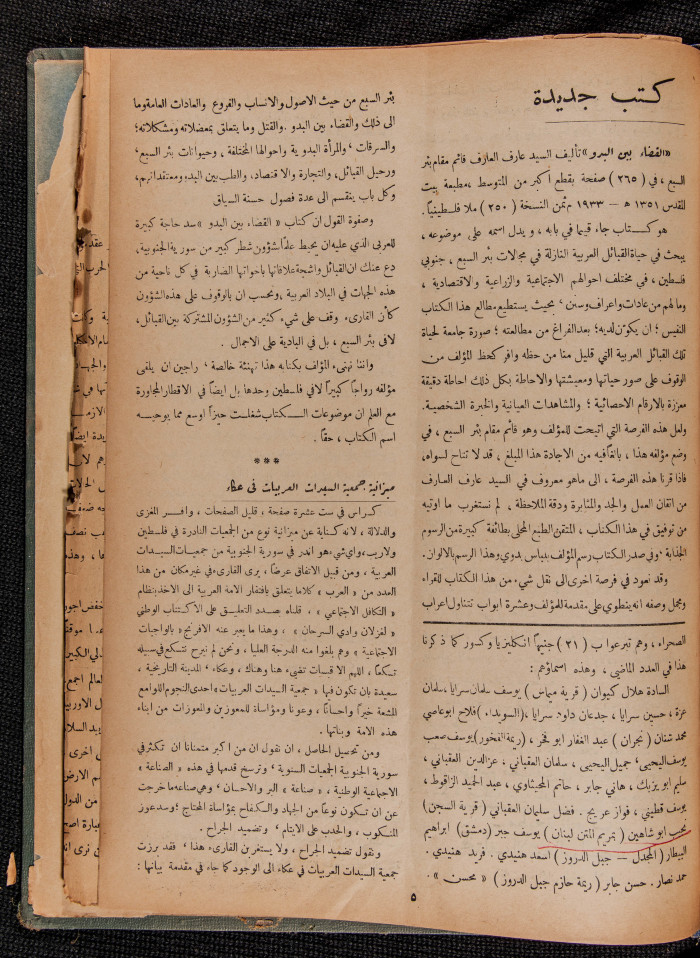 كتب جديدة
«القضاء بين البدو» تأليف السيد عارف العارف قائم مقام بئر
السبع، في (٢٦٥) صفحة بقطع أكبر من المتوسط، مطبعة بيت
المقدس ١٣٥١ هـ — ١٩٣٣ م ثمن النسخة (٢٥٠) ملا فلسطينياً.
هو كتاب جاء قيما في بابه، ويدل اسمه على موضوعه،
يبحث في حياة القبائل العربية النازلة في مجالات بئر السبع، جنوبي
فلسطين، في مختلف احوالهم الاجتماعية والزراعية والاقتصادية،
ومالهم من عادات واعراف وسنن، بحيث يستطيع مطالع هذا الكتاب
النفيس؛ ان يكوّن لديه؛ بعد الفراغ من مطالعته؛ صورة جامعة لحياة
تلك القبائل العربية التي قليل منا من حظه وافر كحظ المؤلف من
الوقوف على صور حياتها ومعيشتها والاحاطة بكل ذلك احاطة دقيقة
معززة بالارقام الاحصائية؛ والمشاهدات العيانية والخبرة الشخصية.
ولعل هذه الفرصة التي اتيحت للمؤلف وهو قائم مقام بئر السبع، في
وضع مؤلفه هذا، بالغا فيه من الاجادة هذا المبلغ، قد لا تتاح لسواه،
فاذا قرنا هذه الفرصة، الى ماهو معروف في السيد عارف العارف
من اتقان العمل والجد والمثابرة ودقة الملاحظة، لم نستغرب ما اوتيه
من توفيق في هذا الكتاب، المتقن الطبع المحلى بطائفة كبيرة من الرسوم
الجذابة. وفي صدر الكتاب رسم المؤلف بلباس بدوي وهذا الرسم بالالوان.
وقد نعود في فرصة اخرى الى نقل شيء من هذا الكتاب للقراء
ومجمل وصفه انه ينطوي على مقدمة للمؤلف وعشرة ابواب تتناول اعراب
الصحراء، وهم تبرعوا ب (٣١) جنيهاً انكليزيا وكسور كما ذكرنا
هذا في العدد الماضي، وهذه اسماؤهم:
السادة هلال كيوان (قرية مياس) يوسف سلمان سرايا، سلمان
عزة، حسين سرايا، جدعان داود سرايا، (السويداء) فلاح ابو عاصي
محمد شنان (نجران) عبد الغفار ابو فخر، (ريمة الفخور) يوسف صعب
يوسف اليحيى، جميل اليحيى، سلمان العقباني، عز الدين العقباني،
سليم ابو يزبك، هاني جابر، حاتم المحيثاوي، عبد الحميد الزاقوط،
يوسف قطيني، فواز عريج. فضل سليمان العقباني (قرية السجن)
نجيب ابو شاهين (بتريم المتن لبنان) يوسف جبر (دمشق) ابراهيم
البيطار (المجدل — جبل الدروز) اسعد هنيدي. فريد هنيدي.
حمد نصار. حسن جابر (ريمة حازم جبل الدروز) «محسن».
بئر السبع من حيث الاصول والانساب والفروع والعادات العامة وما
الى ذلك والقضاء بين البدو. والقتل وما يتعلق بمعضلاته ومشكلاته؛
والسرقات، والمرأة البدوية واحوالها المختلفة، وحيوانات بئر السبع،
ورحيل القبائل، والتجارة والاقتصاد، والطب بين البدو ومعتقداتهم،
وكل باب ينقسم الى عدة فصول حسنة السياق
وصفوة القول ان كتاب «القضاء بين البدو» سد حاجة كبيرة
للعربي الذي عليه ان يحيط علماً بشؤون شطر كبير من سورية الجنوبية،
دع عنك ان القبائل واشجة علاقاتها باخواتها الضاربة في كل ناحية من
هذه الجهات في البلاد العربية، ونحسب ان بالوقوف على هذه الشؤون
كأن القارىء وقف على شيء كثير من الشؤون المشتركة بين القبائل،
لافي بئر السبع، بل في البادية على الاجمال.
واننا نهنىء المؤلف بكتابه هذا تهنئة خالصة، راجين ان يلقى
مؤلفه رواجاً كبيراً لافي فلسطين وحدها بل ايضاً في الاقطار المجاورة
مع العلم ان موضوعات الكتاب شغلت حيزاً اوسع مما يوحيه
اسم الكتاب، حقاً.
***
ميزانية جمعية السيدات العربيات في عكاء
كراس في ست عشرة صفحة، قليل الصفحات، وافر المغزى
والدلالة، لانه كناية عن ميزانية نوع من الجمعيات النادرة في فلسطين
ولاريب، واي شيء هو اندر في سورية الجنوبية من جمعيات السيدات
العربية، ومن قبيل الاتفاق عرضاً، يرى القارىء في غير مكان من هذا
العدد من «العرب» كلاما يتعلق بافتقار الامة العربية الى الاخذ بنظام
«التكافل الاجتماعي»، قلناه صدد التعليق على الاكتتاب الوطني
«لغزلان وادي السرحان»، وهذا ما يعبر عنه الافرنج «بالواجبات
الاجتماعية» وهم بلغوا منه الدرجة العليا، ونحن لم نبرح نتسكع في سبيله
تسكعاً، اللهم الا قبسات تضيء هنا وهناك، وعكاء، المدينة التاريخية،
سعيدة بان تكون فيها «جمعية السيدات العربيات» احدى النجوم اللوامع
المشعة خيراً واحسانا، وعونا ومؤاساة للمعوزين والمعوزات من ابناء
هذه الامة وبناتها.
ومن تحصيل الحاصل، ان نقول ان من اكبر متمنانا ان تكثر في
سورية الجنوبية الجمعيات النسوية، وترسخ قدمها في هذه «الصناعة»
الاجتماعية الوطنية، «صناعة» البر والاحسان، وهي صناعة ما خرجت
عن ان تكون نوعاً من الجهاد والكفاح بمؤاساة المحتاج؛ وسد عوز
المنكوب، والحدب على الايتام، وتضميد الجراح.
ونقول تضميد الجراح، ولا يستغربن القارىء هذا، فقد برزت
جمعية السيدات العربيات في عكاء الى الوجود كما جاء في مقدمة بيانها:
٥